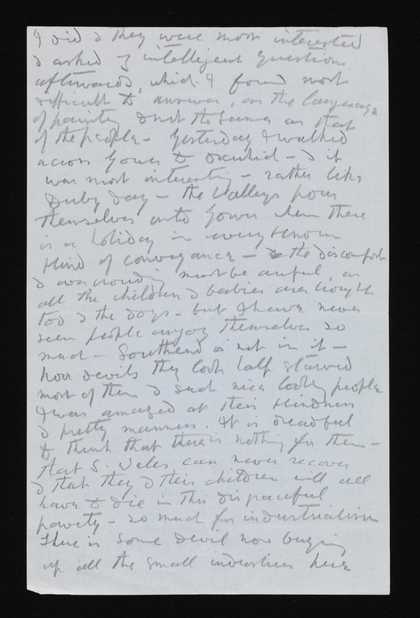 I did & they were most interested
& asked intelligent questions
afterwards, which I found most
difficult to answer, as the language
of painting is not the same as that
of the people - Yesterday I walked
across Gower to Oxwich - & it
was most interesting - rather like
Derby Day - the Valleys pour
themselves into Gower when there
is a holiday in every known
kind of conveyance - & the discomfort
& overcrowding must be awful, as
all the children & babies are brought
too & the dogs - but I have never
seen people enjoy themselves so
much - Southend is not in it -
poor devils they look half starved
most of them & such nice looking people
I was amazed at their kindness
& pretty manners. It is dreadful
to think that there is nothing for them -
that S. Wales can never recover
& that they & their children will all
have to die in this disgraceful
poverty - so much for industrialism
There is some devil now buying
up all the small industries here